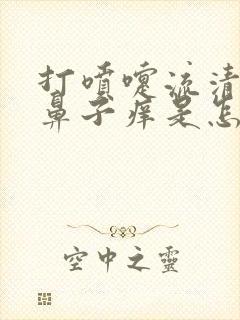 打喷嚏流清
鼻子痒是怎
空中之靈